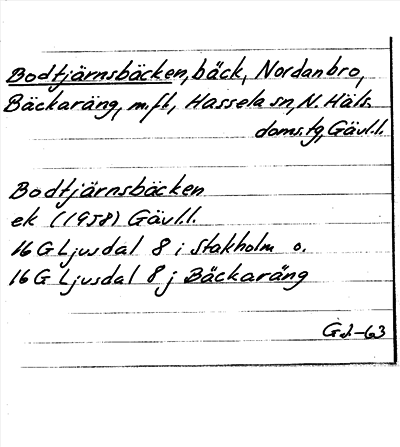 Bodtjärnsbäcken, bäck, Nordanbro,
Bäckaräng, m.fl., Hassela sn, N. Häls.
doms.tg, Gävl.l.
Bodtjärnsbäcken
ek (1958) Gävl.l.
16 G Ljusdal 8 i Stakholm o.
16 G Ljusdal 8 j Bäckaräng
Gd-63